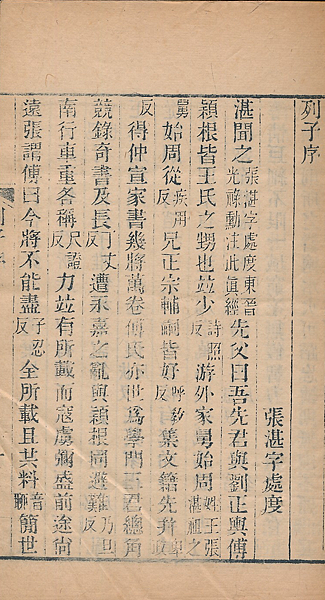 列子序
張湛字處度
湛聞之張湛字處度東晉光祿勳注此真經先父曰吾先君與劉正輿傅
穎根皆王氏之甥也竝少詩照反游外家舅始周姓王張湛祖之
舅始周從疾用反兄正宗輔嗣皆好呼報反集文籍先并卑政
反得仲宣家書幾將萬卷傅氏亦世爲學門三君總角
競錄奇書及長丁丈反遭永嘉之亂與穎根同避難乃旦反
南行車重各稱尺證反力竝有所載而寇虜彌盛前途尚
遠張謂傅曰今將不能盡子忍反全所載且共料音聊簡世